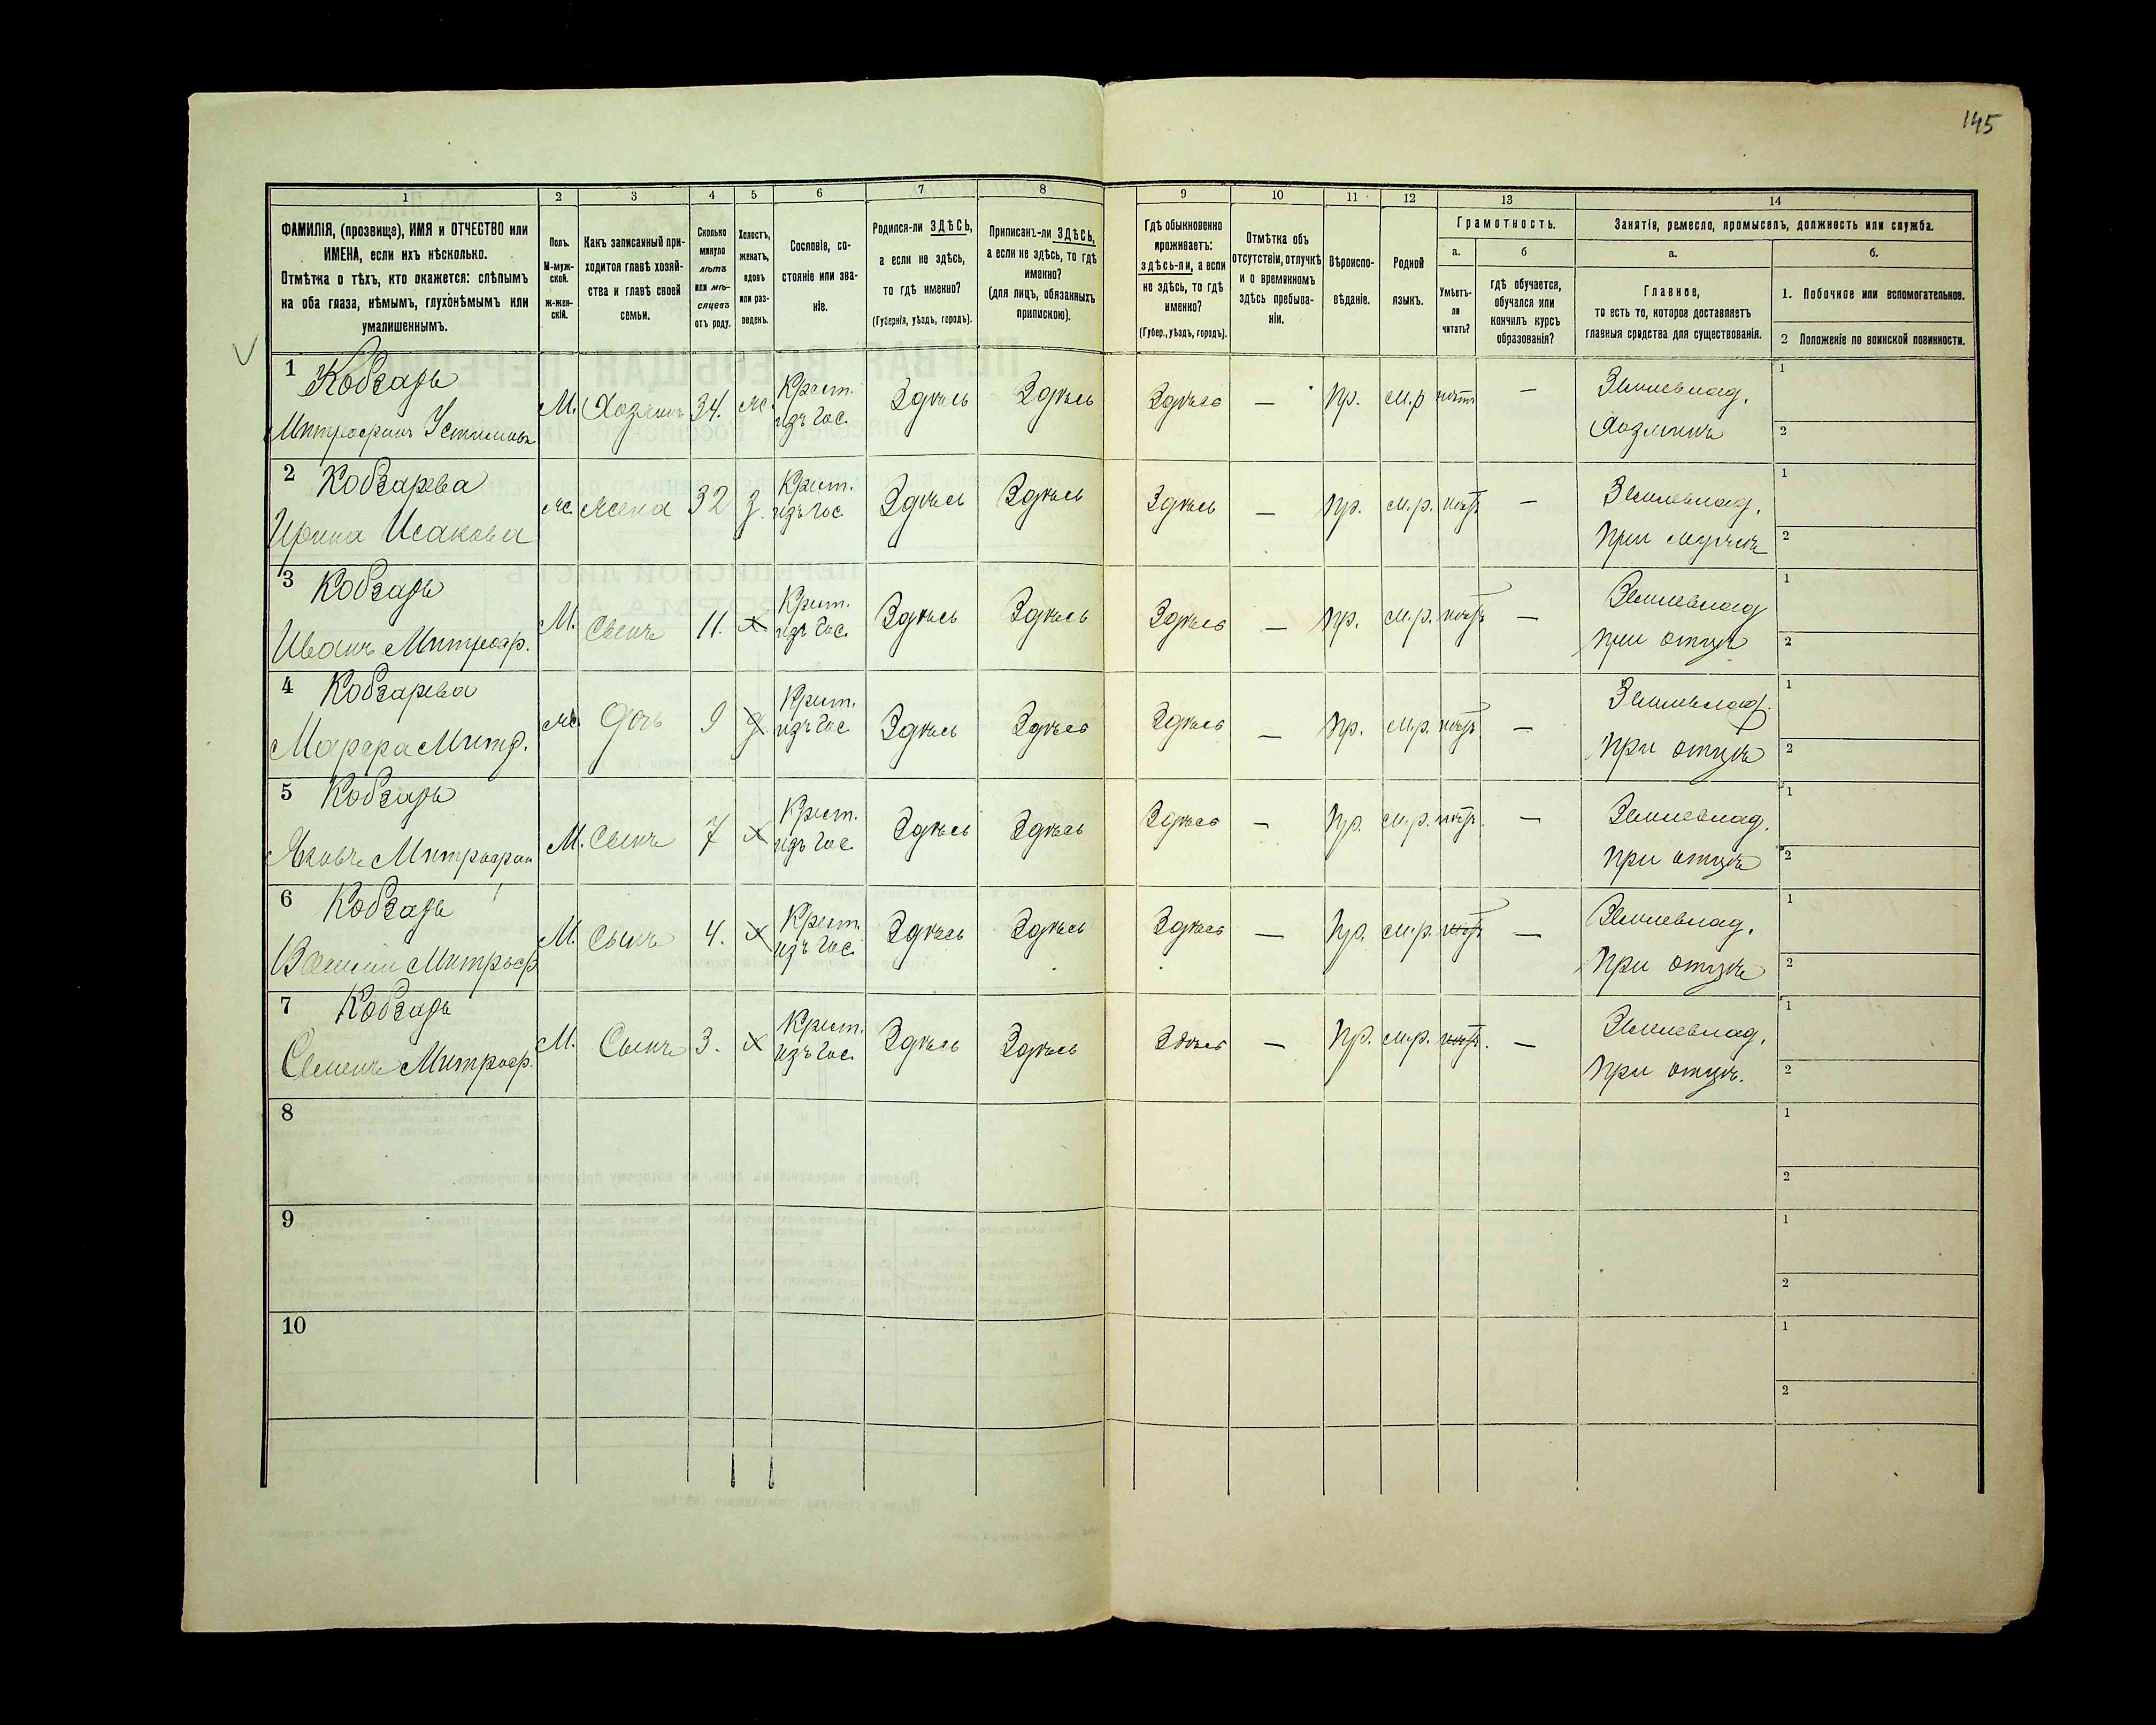 145
1
2
3
4
5
6
7
8
9
10
11
12
13
14
ФАМИЛІЯ, (прозвище), ИМЯ и ОТЧЕСТВО или
ИМЕНА, если ихъ нѣсколько.
Отмѣтка о тѣхъ, кто окажется: слѣпымъ
на оба глаза, нѣмымъ, глухонѣмымъ или
умалишеннымъ.
Полъ.
М-муж-
ской.
ж-жен-
скій.
Какъ записанный при-
ходится главѣ хозяй-
ства и главѣ своей
семьи.
Сколько
минуло
лѣтъ
или мѣ-
сяцевъ
отъ роду.
Холостъ,
женатъ,
вдовъ
или раз-
веденъ.
Сословіе, со-
стояніе или зва-
ніе.
Родился-ли ЗДѢСЬ,
а если не здѣсь,
то гдѣ именно?
(Губернія, уѣздъ, городъ).
Приписанъ-ли ЗДѢСЬ,
а если не здѣсь, то гдѣ
именно?
(для лицъ, обязанныхъ
припискою).
Гдѣ обыкновенно
проживаетъ:
здѣсь-ли, а если
не здѣсь, то гдѣ
именно?
(Губер., уѣздъ, городъ).
Отмѣтка объ
отсутствіи, отлучкѣ
и о временномъ
здѣсь пребыва-
ніи.
Вѣроиспо-
вѣданіе.
Родной
языкъ.
Грамотность.
а.
Умѣетъ-
ли
читать?
б
гдѣ обучается,
обучался или
кончилъ курсъ
образованія?
Занятіе, ремесло, промыселъ, должность или служба.
а.
Главное,
то есть то, которое доставляетъ
главныя средства для существованія.
б.
1. Побочное или вспомогательное.
2 Положеніе по воинской повинности.
1 Кобзарь
Митрофанъ Устиновъ
М. Хозяинъ 34. ж. Крест. изъ гос. Здѣсь Здѣсь Здѣсь — Пр. м.р нѣтъ —
Землевлад.
Хозяинъ
1
2
2 Кобзарева
Ирина Исакова
ж. жена 32 з. Крест. изъ гос. Здѣсь Здѣсь Здѣсь — Пр. м.р. нѣтъ —
Землевлад.
при мужѣ
1
2
3 Кобзарь
Иванъ Митроф.
М. Сынъ 11. х. Крест. изъ гос. Здѣсь Здѣсь Здѣсь — Пр. м.р. нѣтъ —
Землевлад
при отцѣ
1
2
4 Кобзарева
Марфа Митр.
ж. Дочь 9 Крест. изъ гос. Здѣсь Здѣсь Здѣсь — Пр. м.р. нѣтъ —
Землевлад.
при отцѣ
1
2
5 Кобзарь
Яковъ Митрофан
М. Сынъ 7 х Крест. изъ гос. Здѣсь Здѣсь Здѣсь — Пр. м.р. нѣтъ. —
Землевлад.
при отцѣ
1
2
6 Кобзарь
Василій Митроф
М. Сынъ 4. х Крест. изъ гос. Здѣсь Здѣсь Здѣсь — Пр. м.р. нѣтъ —
Землевлад.
при отцѣ
1
2
7 Кобзарь
Семенъ Митроф.
М. Сынъ 3. х Крест. изъ гос. Здѣсь Здѣсь Здѣсь — Пр. м.р. нѣтъ. —
Землевлад.
при отцѣ.
1
2
8
1
2
9
1
2
10
1
2